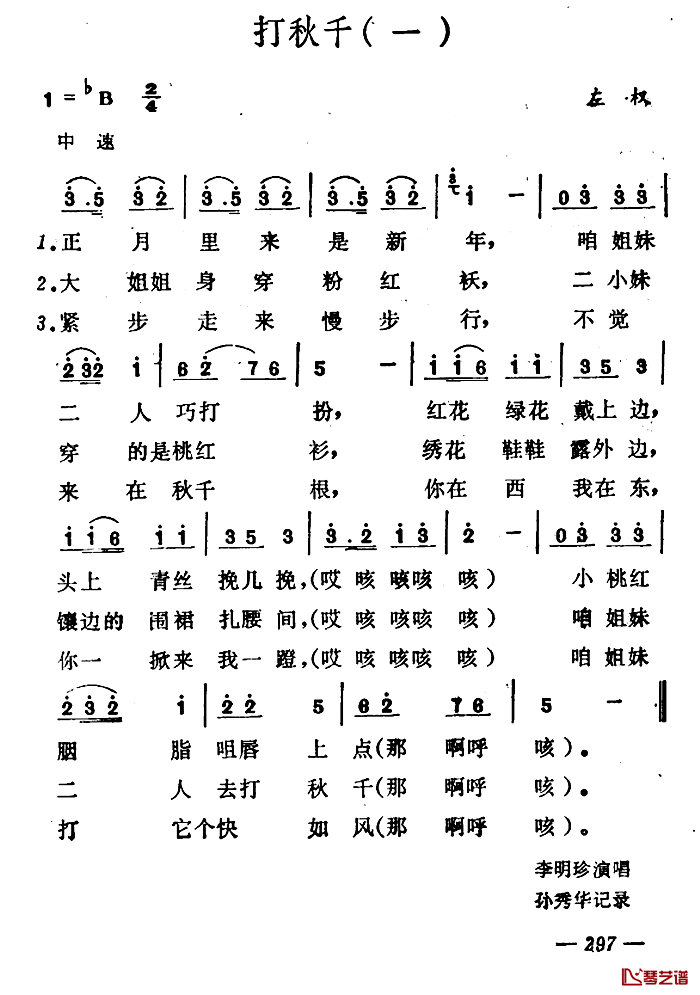 打秋千(一)
1=♭B 2/4 左权
中速
3.5 3 2 3.5 3 2 3.5 3 2 3 7 1 - 0 3 3 3
1.正月里来是新年,咱姐妹
2.大姐姐身穿粉红袄,二小妹
3.紧步走来慢步行,不觉
2 3 2 1 6 2 7 6 5 - 1 1 6 1 1 3 5 3
二人巧打扮,红花绿花戴上边,
穿的是桃红衫,绣花鞋鞋露外边,
来在秋千根,你在西我在东,
1 1 6 1 1 3 5 3 3.2 1 3 2 - 0 3 3 3
头上青丝挽几挽,(哎咳咳咳咳)小桃红
镶边的围裙扎腰间,(哎咳咳咳咳)咱姐妹
你一掀来我一蹬,(哎咳咳咳咳)咱姐妹
2 3 2 1 2 2 5 6 2 7 6 5 -
胭脂咀唇上点(那啊呼咳)。
二人去打秋千(那啊呼咳)。
打它个快如风(那啊呼咳)。
李明珍演唱
孙秀华记录
— 297 —
琴艺谱